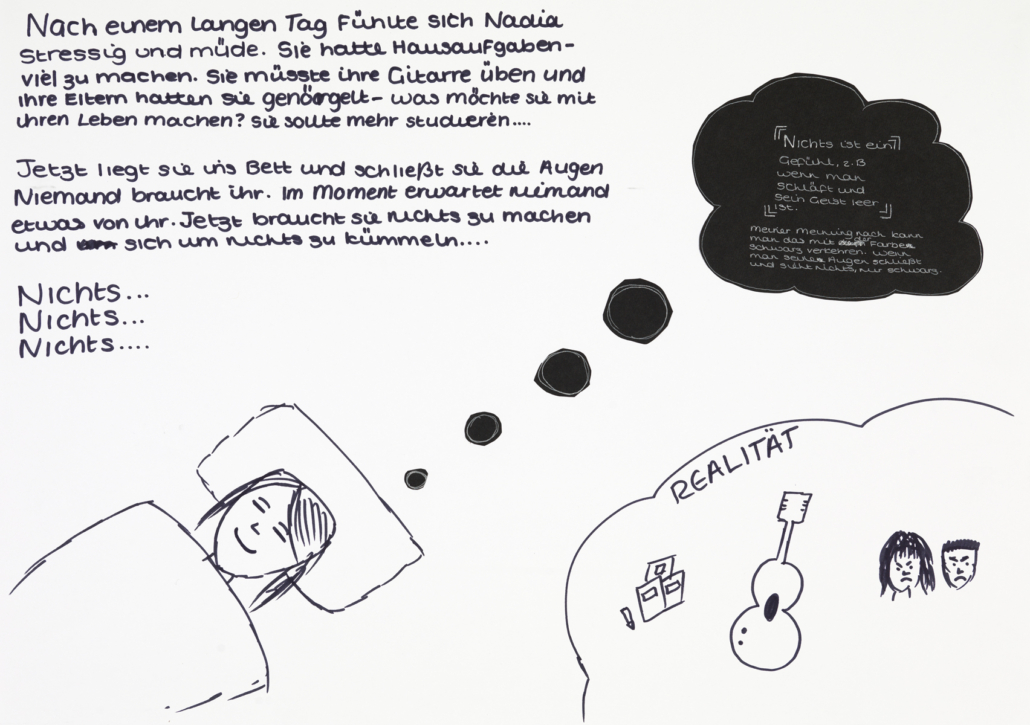 Nach einem langen Tag fühlte sich Nadia
stressig und müde. Sie hatte Hausaufgaben-
viel zu machen. Sie müsste ihre Gitarre üben und
ihre Eltern hatten sie genörgelt- was möchte sie mit
ihren Leben machen? Sie sollte mehr studieren....
Jetzt liegt sie ins Bett und schließt sie die Augen
Niemand braucht ihr. Im Moment erwartet niemand
etwas von ihr. Jetzt braucht sie nichts zu machen
und sich um nichts zu kümmeln....
Nichts...
Nichts...
Nichts....
Nichts ist ein
Gefühl, z.B
wenn man
schläft und
sein Geist leer
ist.
meiner Meinung nach kann
man das mit der Farbe
schwarz verkehren. Wenn
man seine Augen schließt
und sieht nichts, nur schwarz.
REALITÄT